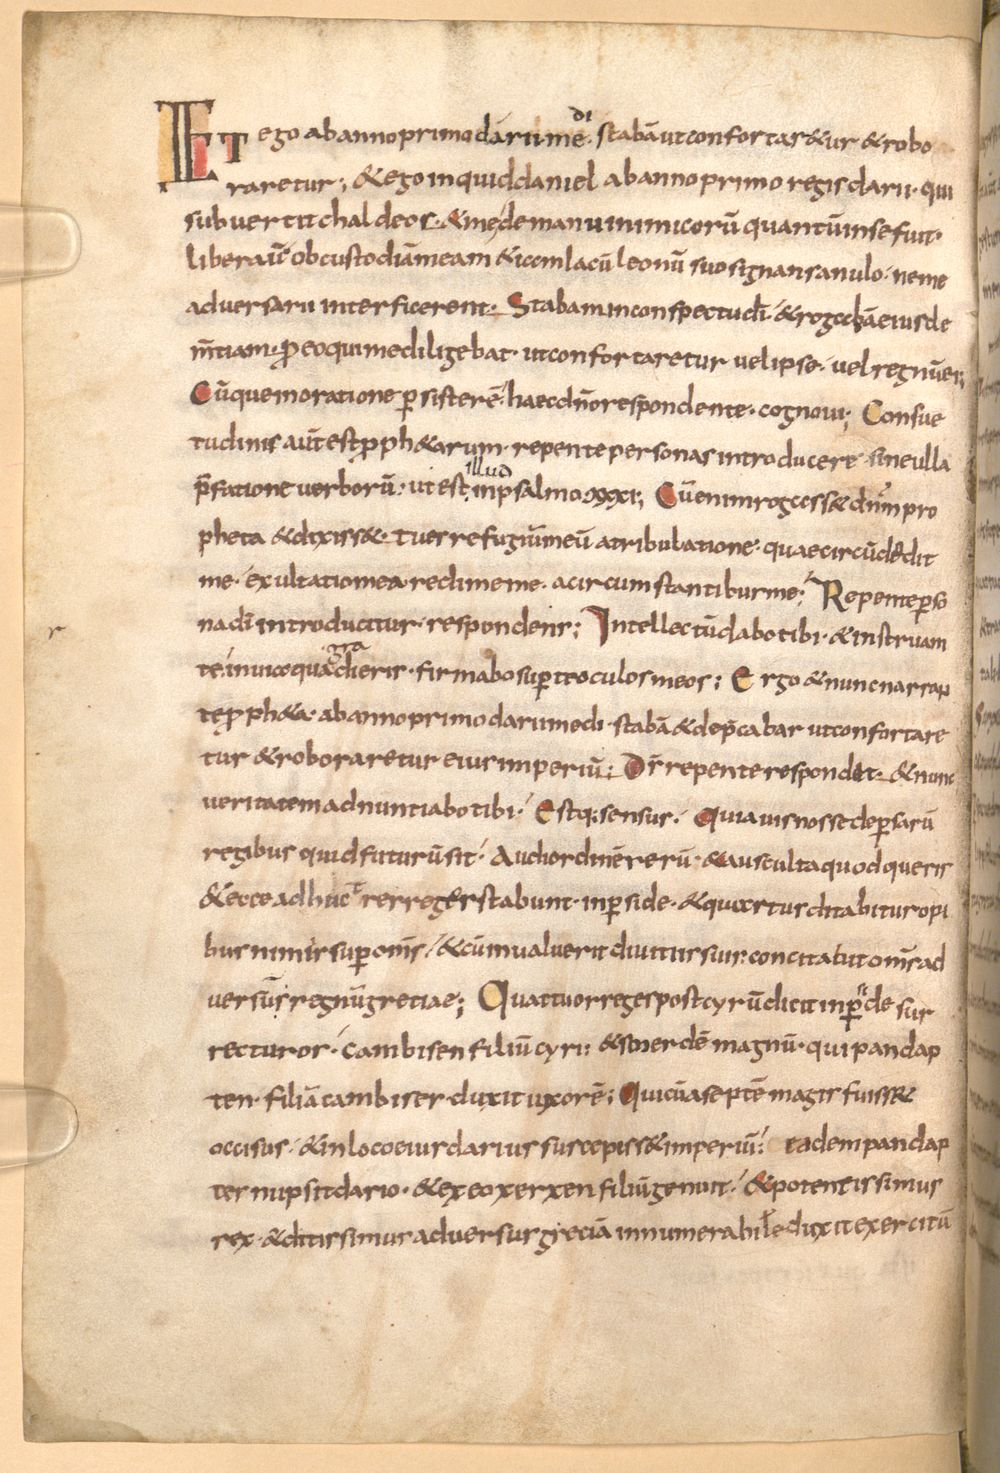 ET ego ab anno primo darii medi. stabā ut confortar&ur & robo
raretur; & ego inquid daniel ab anno primo regis darii. qui
subvertit chaldeos. & me de manu inimicorū quantū in se fuit.
liberavit ob custodiā meam & iecit in lacū leonū suo signans anulo. ne me
adversarii interficerent. Stabam in conspectu dī. & rogabā eius de
mtiam. p eo qui me diligebat. ut confortaretur vel ipse. vel regnū ei;
Cūque in oratione psisterē. haec dn̄o respondente. cognovi; Consue
tudinis aūt est pph&arum. repente personas introducere sine ulla
p̄fatione verborū. ut est illud in psalmo xxxi; Cū enim rogass& dn̄m pro
pheta & dixiss&. tu es refugiū meū a tribulatione. quae circūdedit
me. exultatio mea redime me. a circumstantibus me; Repente pso
na dī introducitur. respondens; Intellectū dabo tibi. & instruam
te in via qua gradieris. firmabo sup te oculos meos; Ergo & nunc narrap
te pph&a. ab anno primo darii medi. stabā & dep̄cabar ut confortare
tur & roboraretur eius imperiū; Ds̄ repente respond&. & nunc
veritatem adnuntiabo tibi. Estq; sensus. Quia vis nosse de psarū
regibus quid futurū sit. Audi ordinē rerū. & ausculta quod queris
& ecce adhuc tres reges stabunt. in pside. & quartus ditabitur opi
bus nimis sup om̄s. & cū invaluerit divitiis suis. concitabit om̄s ad
versū regnū gretiae; Quattuor reges post cyrū dicit in pside sur
recturos. Cambisen filiū cyri. & smerdē magnū. qui pandap
ten. filiā cambises. duxit uxorē; Qui cū a septē magis fuiss&
occisus. & in loco eius darius suscepiss& imperiū. eadem pandap
te nupsit dario. & ex eo xerxen filiū genuit. & potentissimus
rex. & ditissimus adversus greciā innumerabile duxit exercitū